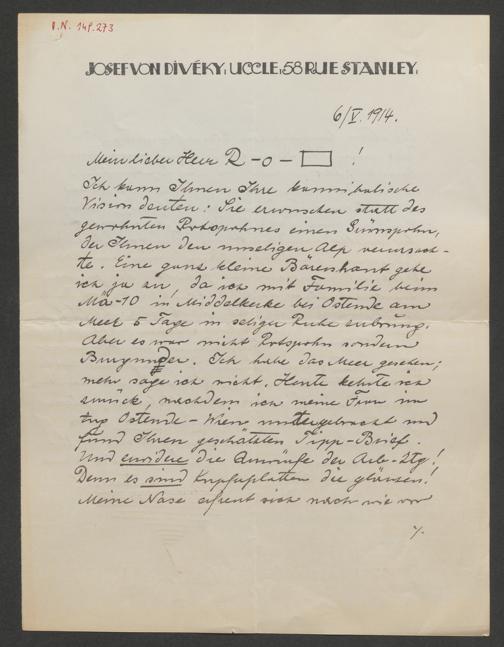 I.N. 149.273
JOSEF VON DIVÉKY, UCCLE, 58 RUE STANLEY,
6/V. 1914.
Mein lieber Herr R - o - !
Ich kann Ihnen Ihre kannibalische
Vision deuten: Sie erwischten statt des
gewohnten Rotspohnes einen Grünspohn,
der Ihnen den unseligen Alp verursach-
te. Eine ganz kleine Bärenhaut gebe
ich ja zu, da ich mit Familie beim
in Middelkerke bei Ostende am
Meer 5 Tage in seliger Ruhe zubrung.
Aber es war nicht Rotspohn sondern
Burgunder. Ich habe das Meer gesehen;
mehr sage ich nicht. Heute kehrte ich
zurück, nachdem ich meine Frau im
Ostende-Wien untergebracht und
fand Ihren geschätzten Tipp-Brief.
Und die der Arb-Ztg!
Denn es sind Kupferplatten die glänzen!
Meine Nase sich nach wie vor
./.